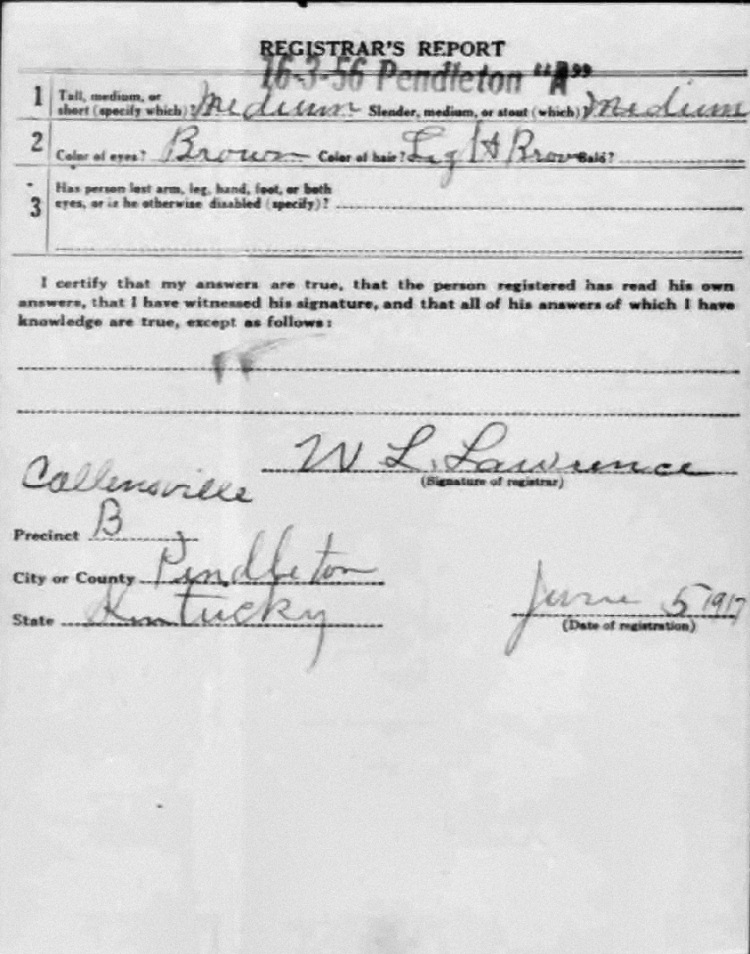 REGISTRAR'S REPORT
16-3-56 Pendleton "A"
1 Tall, medium, or short (specify which)? Medium Slender, medium, or stout (which)? Medium
2 Color of eyes? Brown Color of hair? Light Brown Bald?
3 Has person lost arm, leg, hand, foot, or both
eyes, or is he otherwise disabled (specify)?
I certify that my answers are true, that the person registered has read his own
answers, that I have witnessed his signature, and that all of his answers of which I have
knowledge are true, except as follows:
W L. Lawrence
(Signature of registrar)
Callensville
Precinct B
City or County Pendleton
State Kentucky
June 5 1917
(Date of registration)